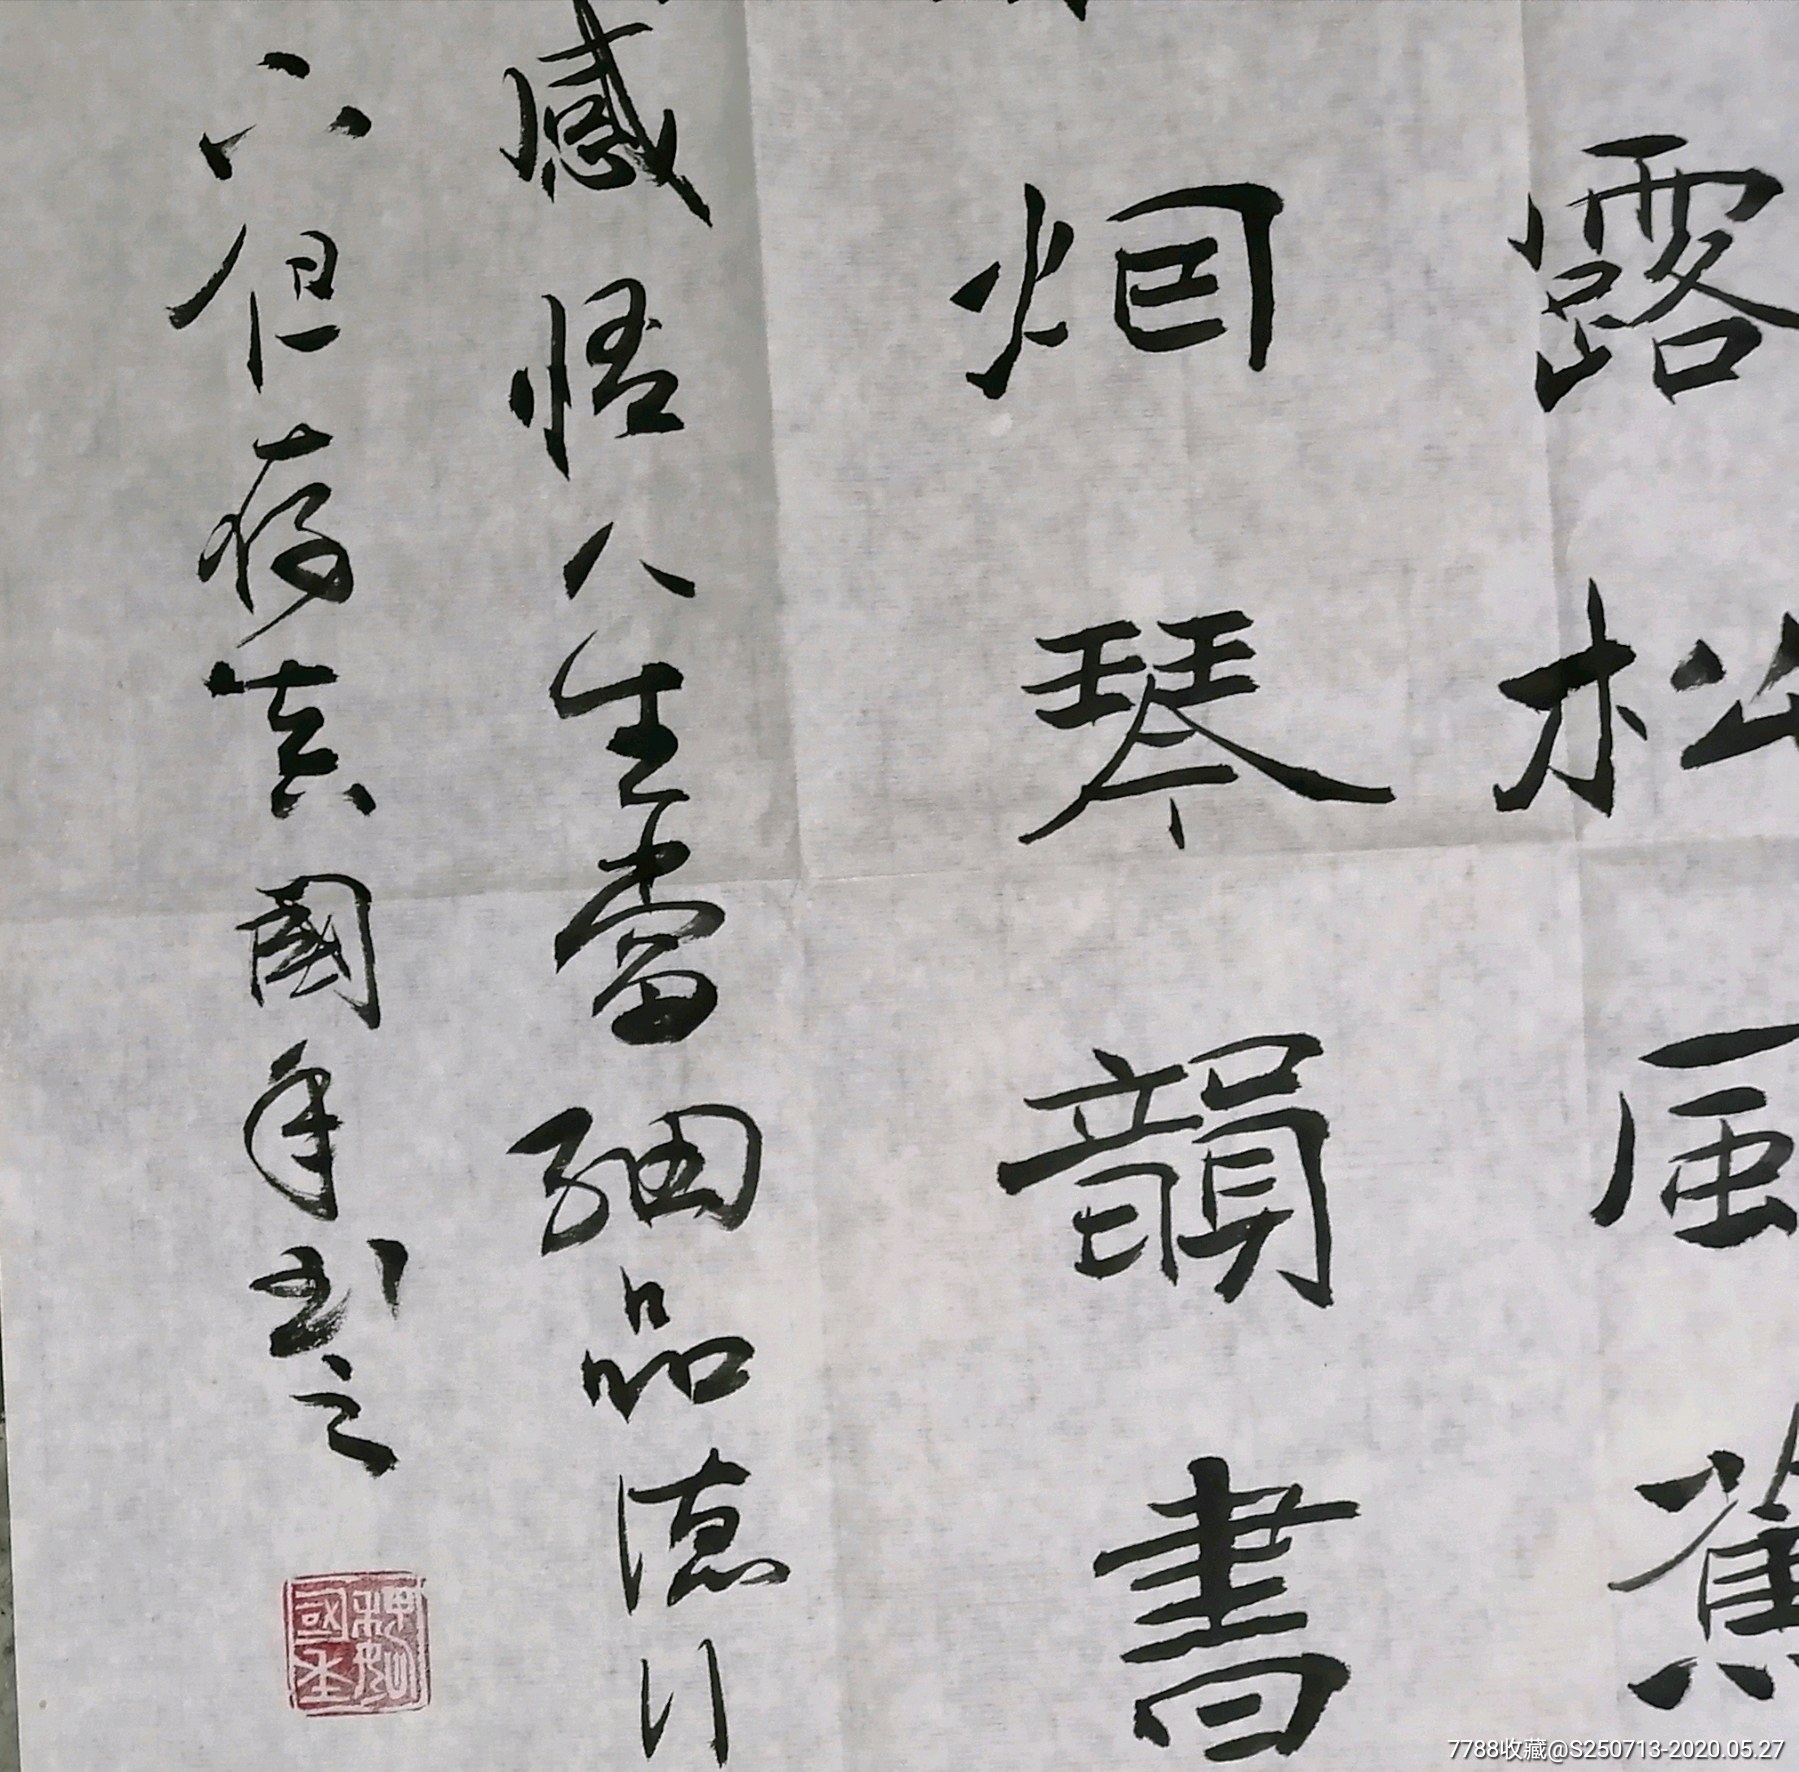 露松風蕉
烟琴韻書
感悟人生當細品德行
六但存真國年书之
7788收藏@S250713-2020.05.27